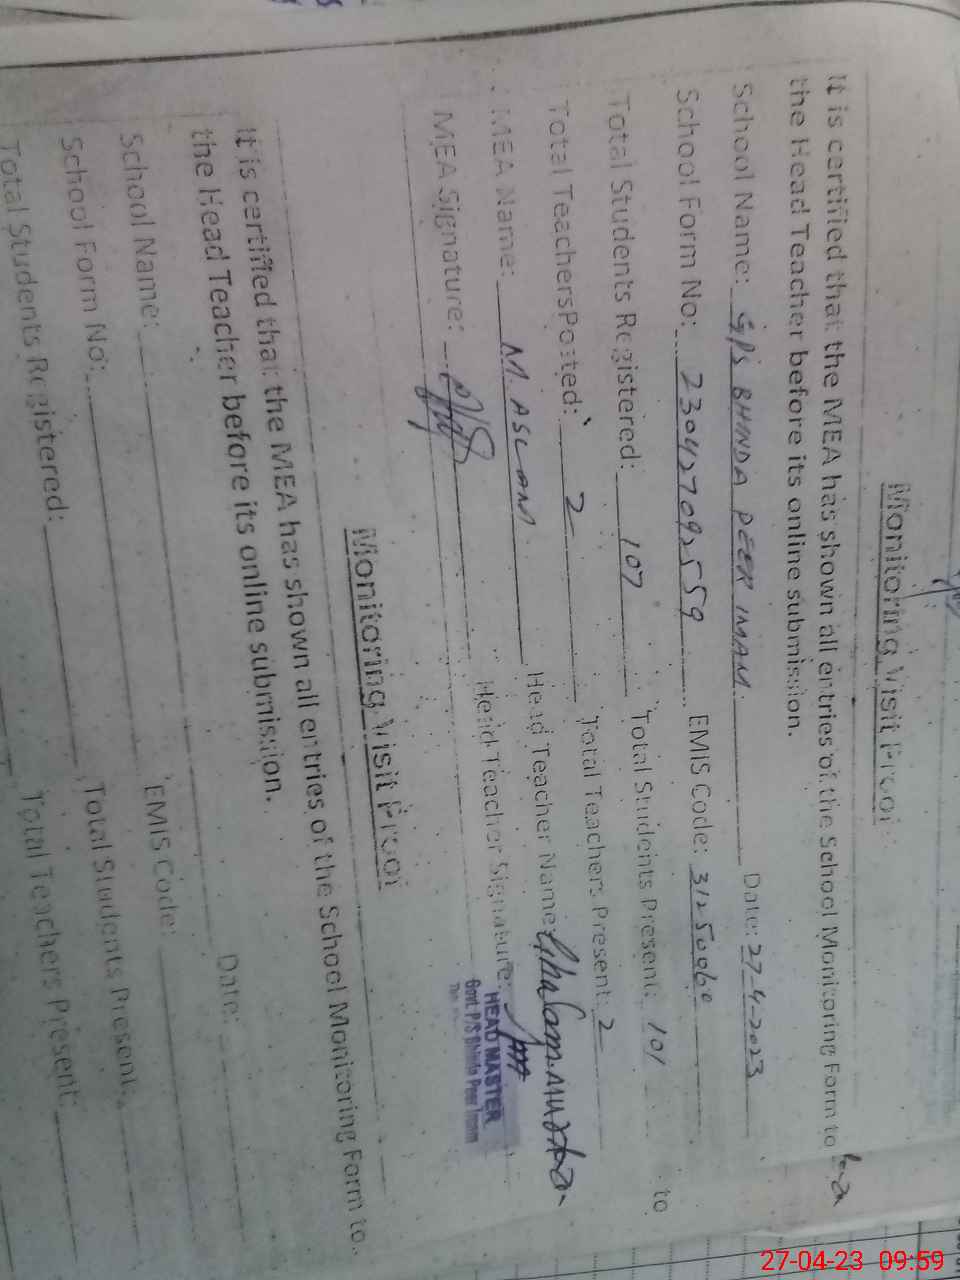 Monitoring Visit Proof
It is certified that the MEA has shown all entries of the School Monitoring Form to
the Head Teacher before its online submission.
School Name: GPS BHNDA PEER IMAM Date: 27-4-2023
School Form No: 230427092559 EMIS Code: 31250060
Total Students Registered: 107 Total Students Present: 101 to
Total Teachers Posted: 2 Total Teachers Present: 2
MEA Name: M. ASLAM Head Teacher Name: Ghulam Murtaza
MEA Signature: Head Teacher Signature:
HEAD MASTER
Govt. P/S Bhinda Peer Imam
Monitoring Visit Proof
It is certified that the MEA has shown all entries of the School Monitoring Form to
the Head Teacher before its online submission.
School Name: Date:
School Form No: EMIS Code:
Total Students Registered: Total Students Present:
Total Teachers Present:
27-04-23 09:59